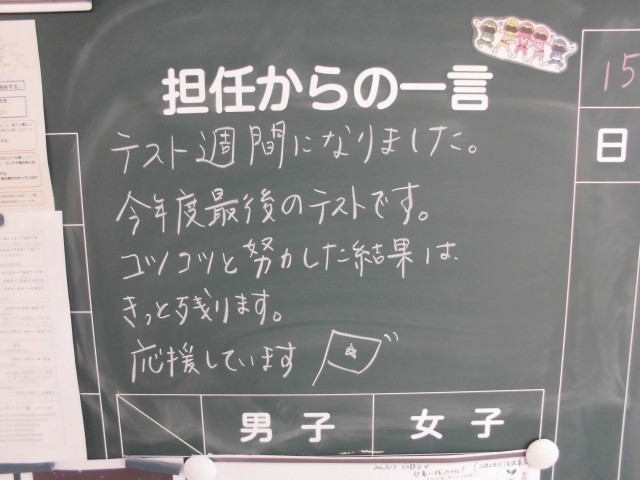 担任からの一言
テスト週間になりました。
今年度最後のテストです。
コツコツと努力した結果は
きっと残ります。
応援しています
男子
女子
15
日